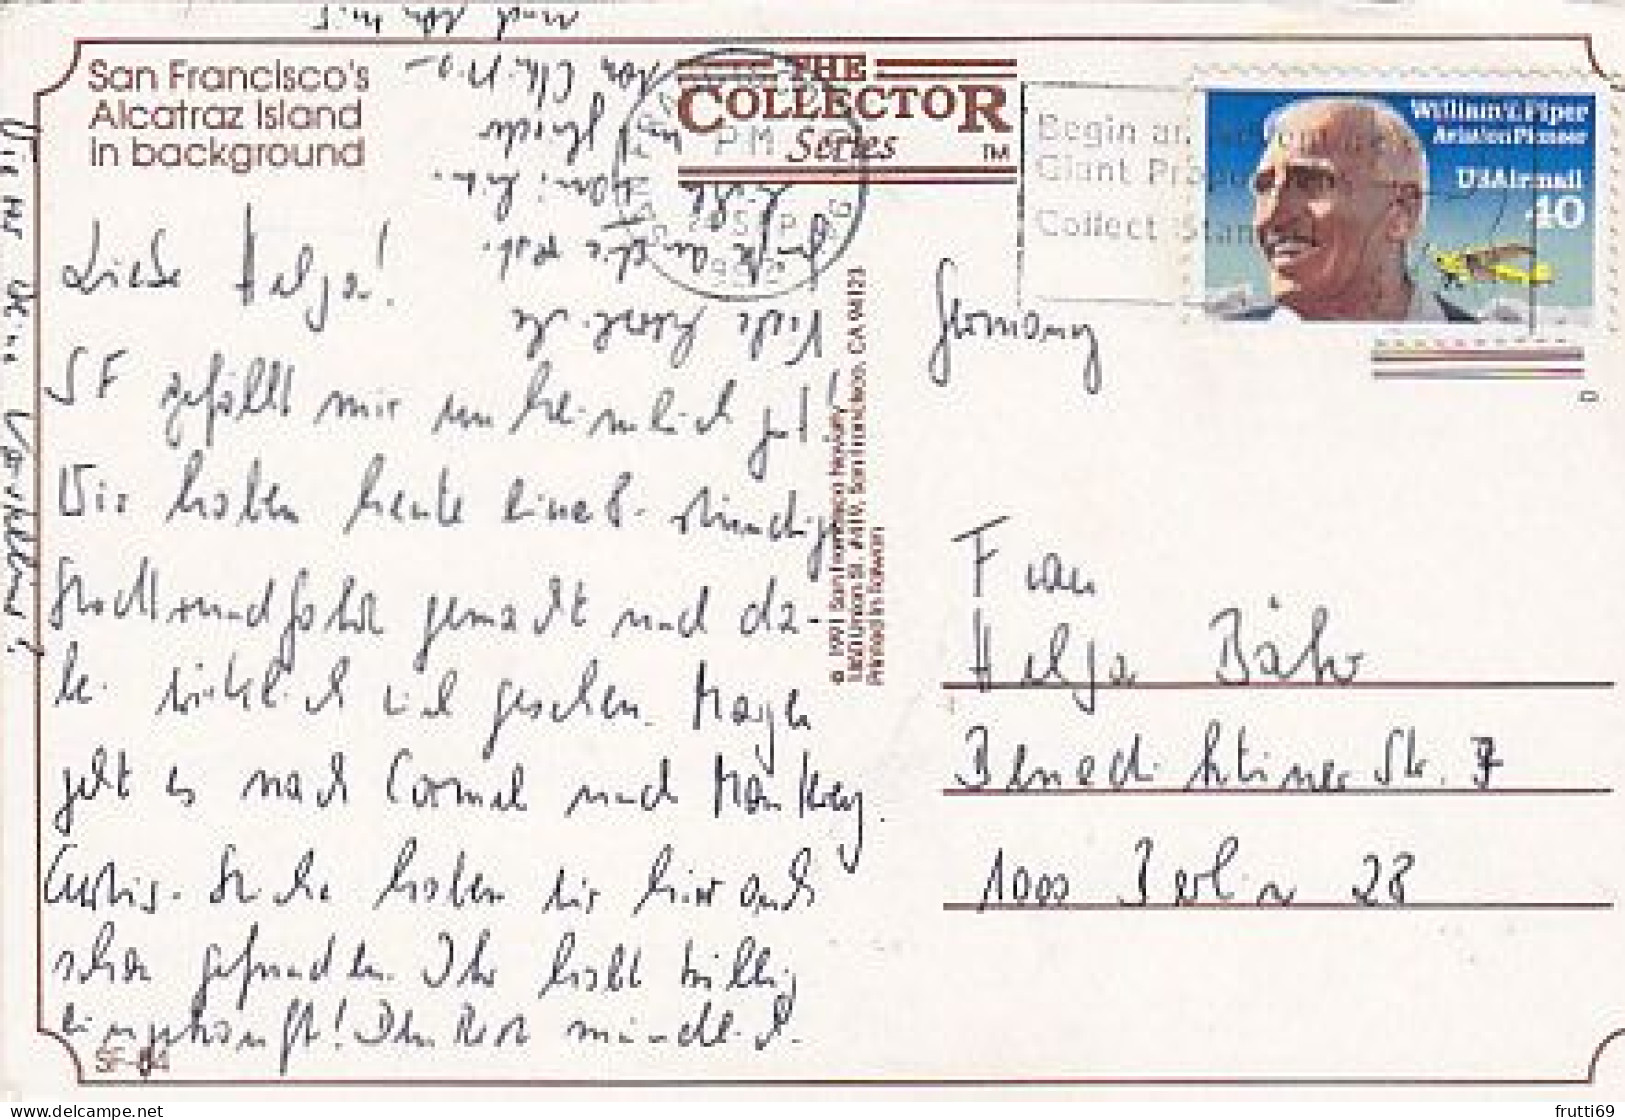 San Francisco's
Alcatraz Island
in background
THE
COLLECTOR
Series
TM
PM
Begin an
Giant
Collect Stam
William T. Piper
Aviation Pioneer
USAirmail
40
Liebe Helga!
SF gefällt mir unheimlich gut!
Wir haben heute eine 6-stündige
Stadtrundfahrt gemacht und da-
bei wirklich viel gesehen. Morgen
geht es nach Carmel und Monterey.
Curtis-Stiche haben wir hier auch
schon gefunden. Ihr habt billig
eingekauft! Den Rest mündlich.
Viele Grüße
und
© 1991 San Francisco Novelty
1,820 Union St. #419, San Francisco, CA 94123
Printed in Taiwan
Germany
D
Frau
Helga Bähr
Benediktiner Str. 7
1000 Berlin 28
SF-64
frutti69